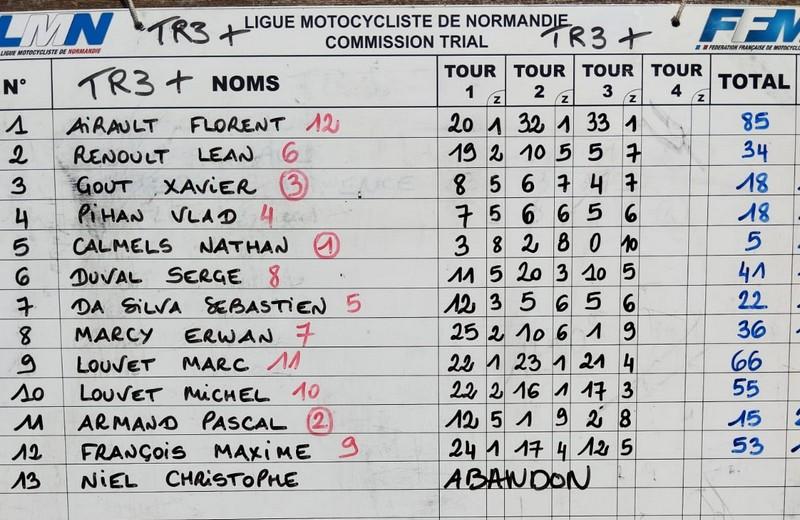 LMN LIGUE MOTOCYCLISTE DE NORMANDIE FFM
LIGUE MOTOCYCLISTE DE NORMANDIE TR3+ COMMISSION TRIAL TR3+ FÉDÉRATION FRANÇAISE DE MOTOCYCL
N° TR3+ NOMS TOUR 1 z TOUR 2 z TOUR 3 z TOUR 4 z TOTAL
1 AIRAULT FLORENT 12 20 1 32 1 33 1 85
2 RENOULT LEAN 6 19 2 10 5 5 7 34
3 GOUT XAVIER 3 8 5 6 7 4 7 18
4 PIHAN VLAD 4 7 5 6 6 5 6 18
5 CALMELS NATHAN 1 3 8 2 8 0 10 5
6 DUVAL SERGE 8 11 5 20 3 10 5 41
7 DA SILVA SEBASTIEN 5 12 3 5 6 5 6 22
8 MARCY ERWAN 7 25 2 10 6 1 9 36
9 LOUVET MARC 11 22 1 23 1 21 4 66
10 LOUVET MICHEL 10 22 2 16 1 17 3 55
11 ARMAND PASCAL 2 12 5 1 9 2 8 15
12 FRANÇOIS MAXIME 9 24 1 17 4 12 5 53
13 NIEL CHRISTOPHE ABANDON